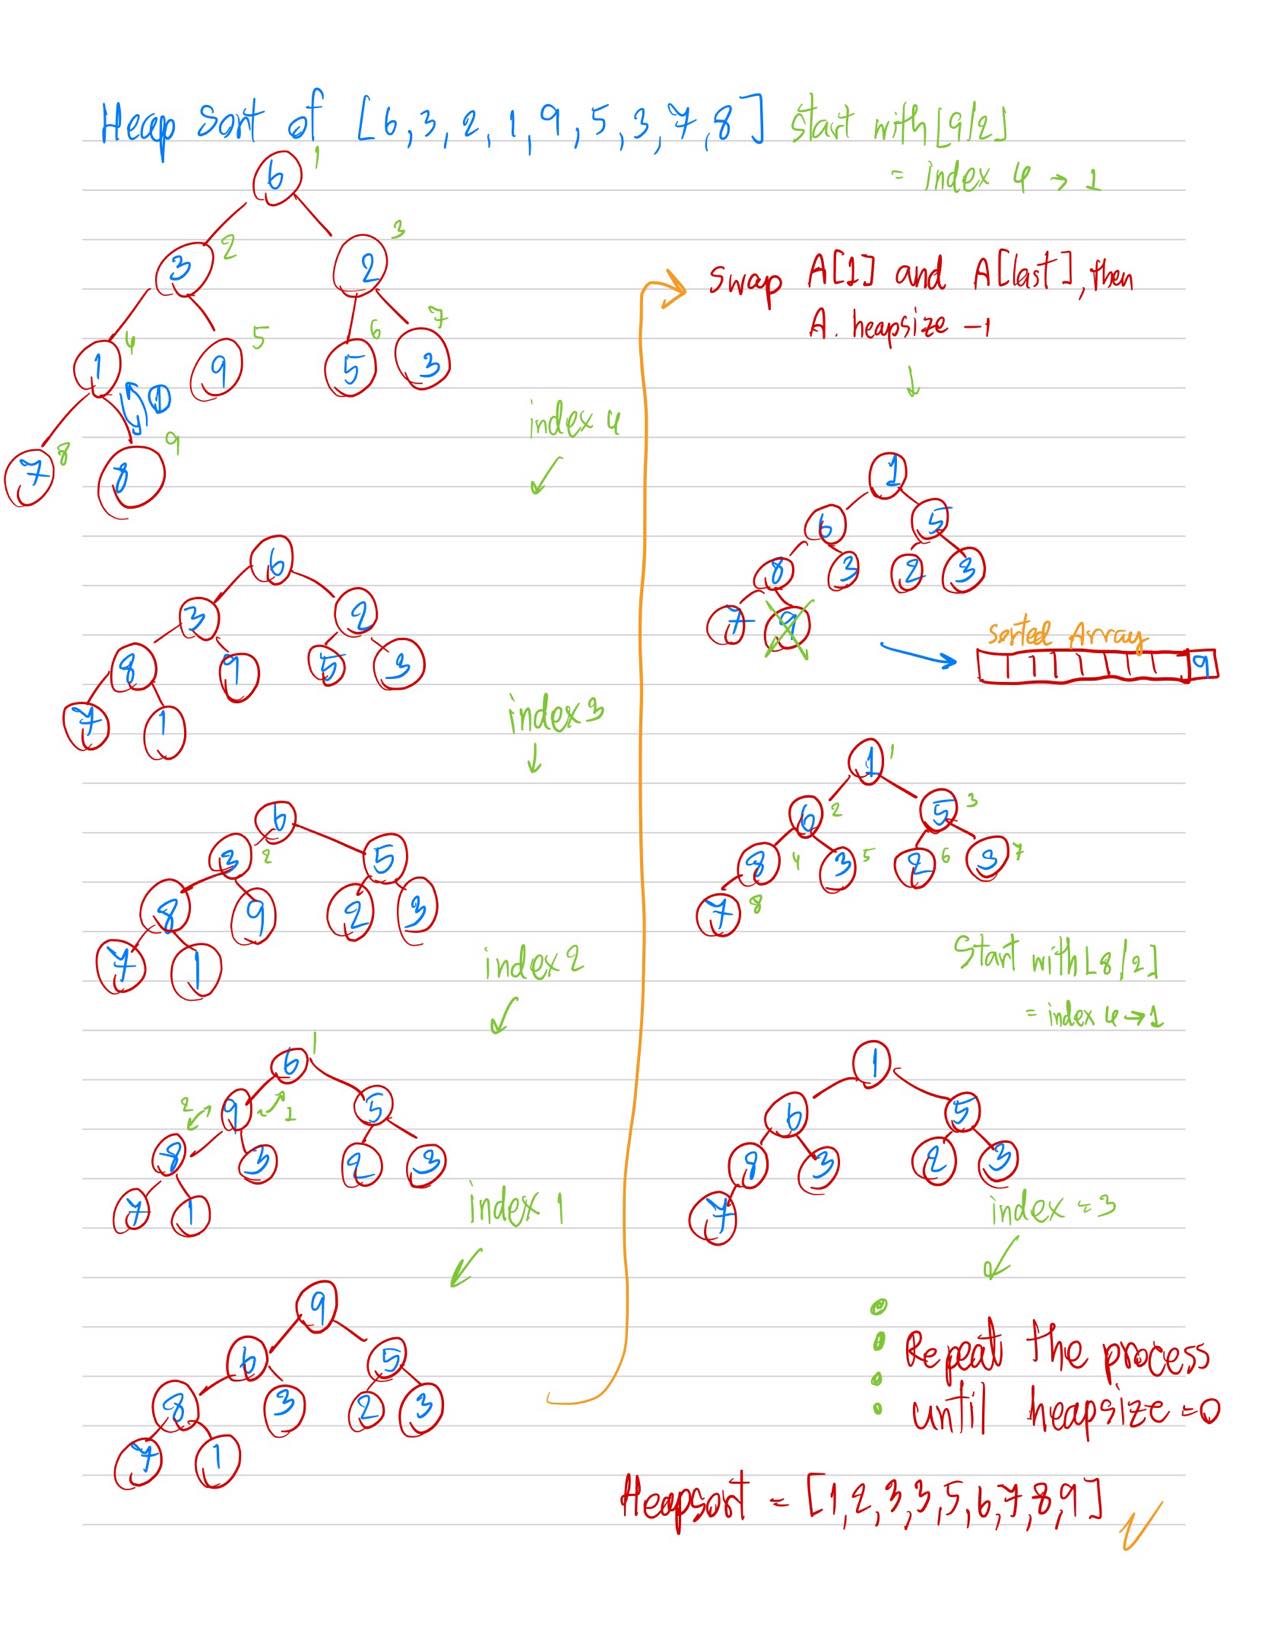 Heap Sort of [6,3,2,1,9,5,3,7,8] Start with ⌊9/2⌋
= index 4 → 1
6 1
3 2 2 3
1 4 9 5 5 6 3 7
1
7 8 8 9
index 4
6
3 2
8 9 5 3
7 1
index 3
6
3 2 5
8 9 2 3
7 1
index 2
6 1
2 9 1 5
8 3 2 3
7 1
index 1
9
6 5
8 3 2 3
7 1
Swap A[1] and A[last], then
A. heapsize -1
1
6 5
8 3 2 3
7 9
Sorted Array
9
1 1
6 2 5 3
8 4 3 5 2 6 3 7
7 8
Start with ⌊8/2⌋
= index 4 → 1
1
6 5
8 3 2 3
7
index = 3
Repeat the process
until heapsize = 0
Heapsort = [1,2,3,3,5,6,7,8,9]